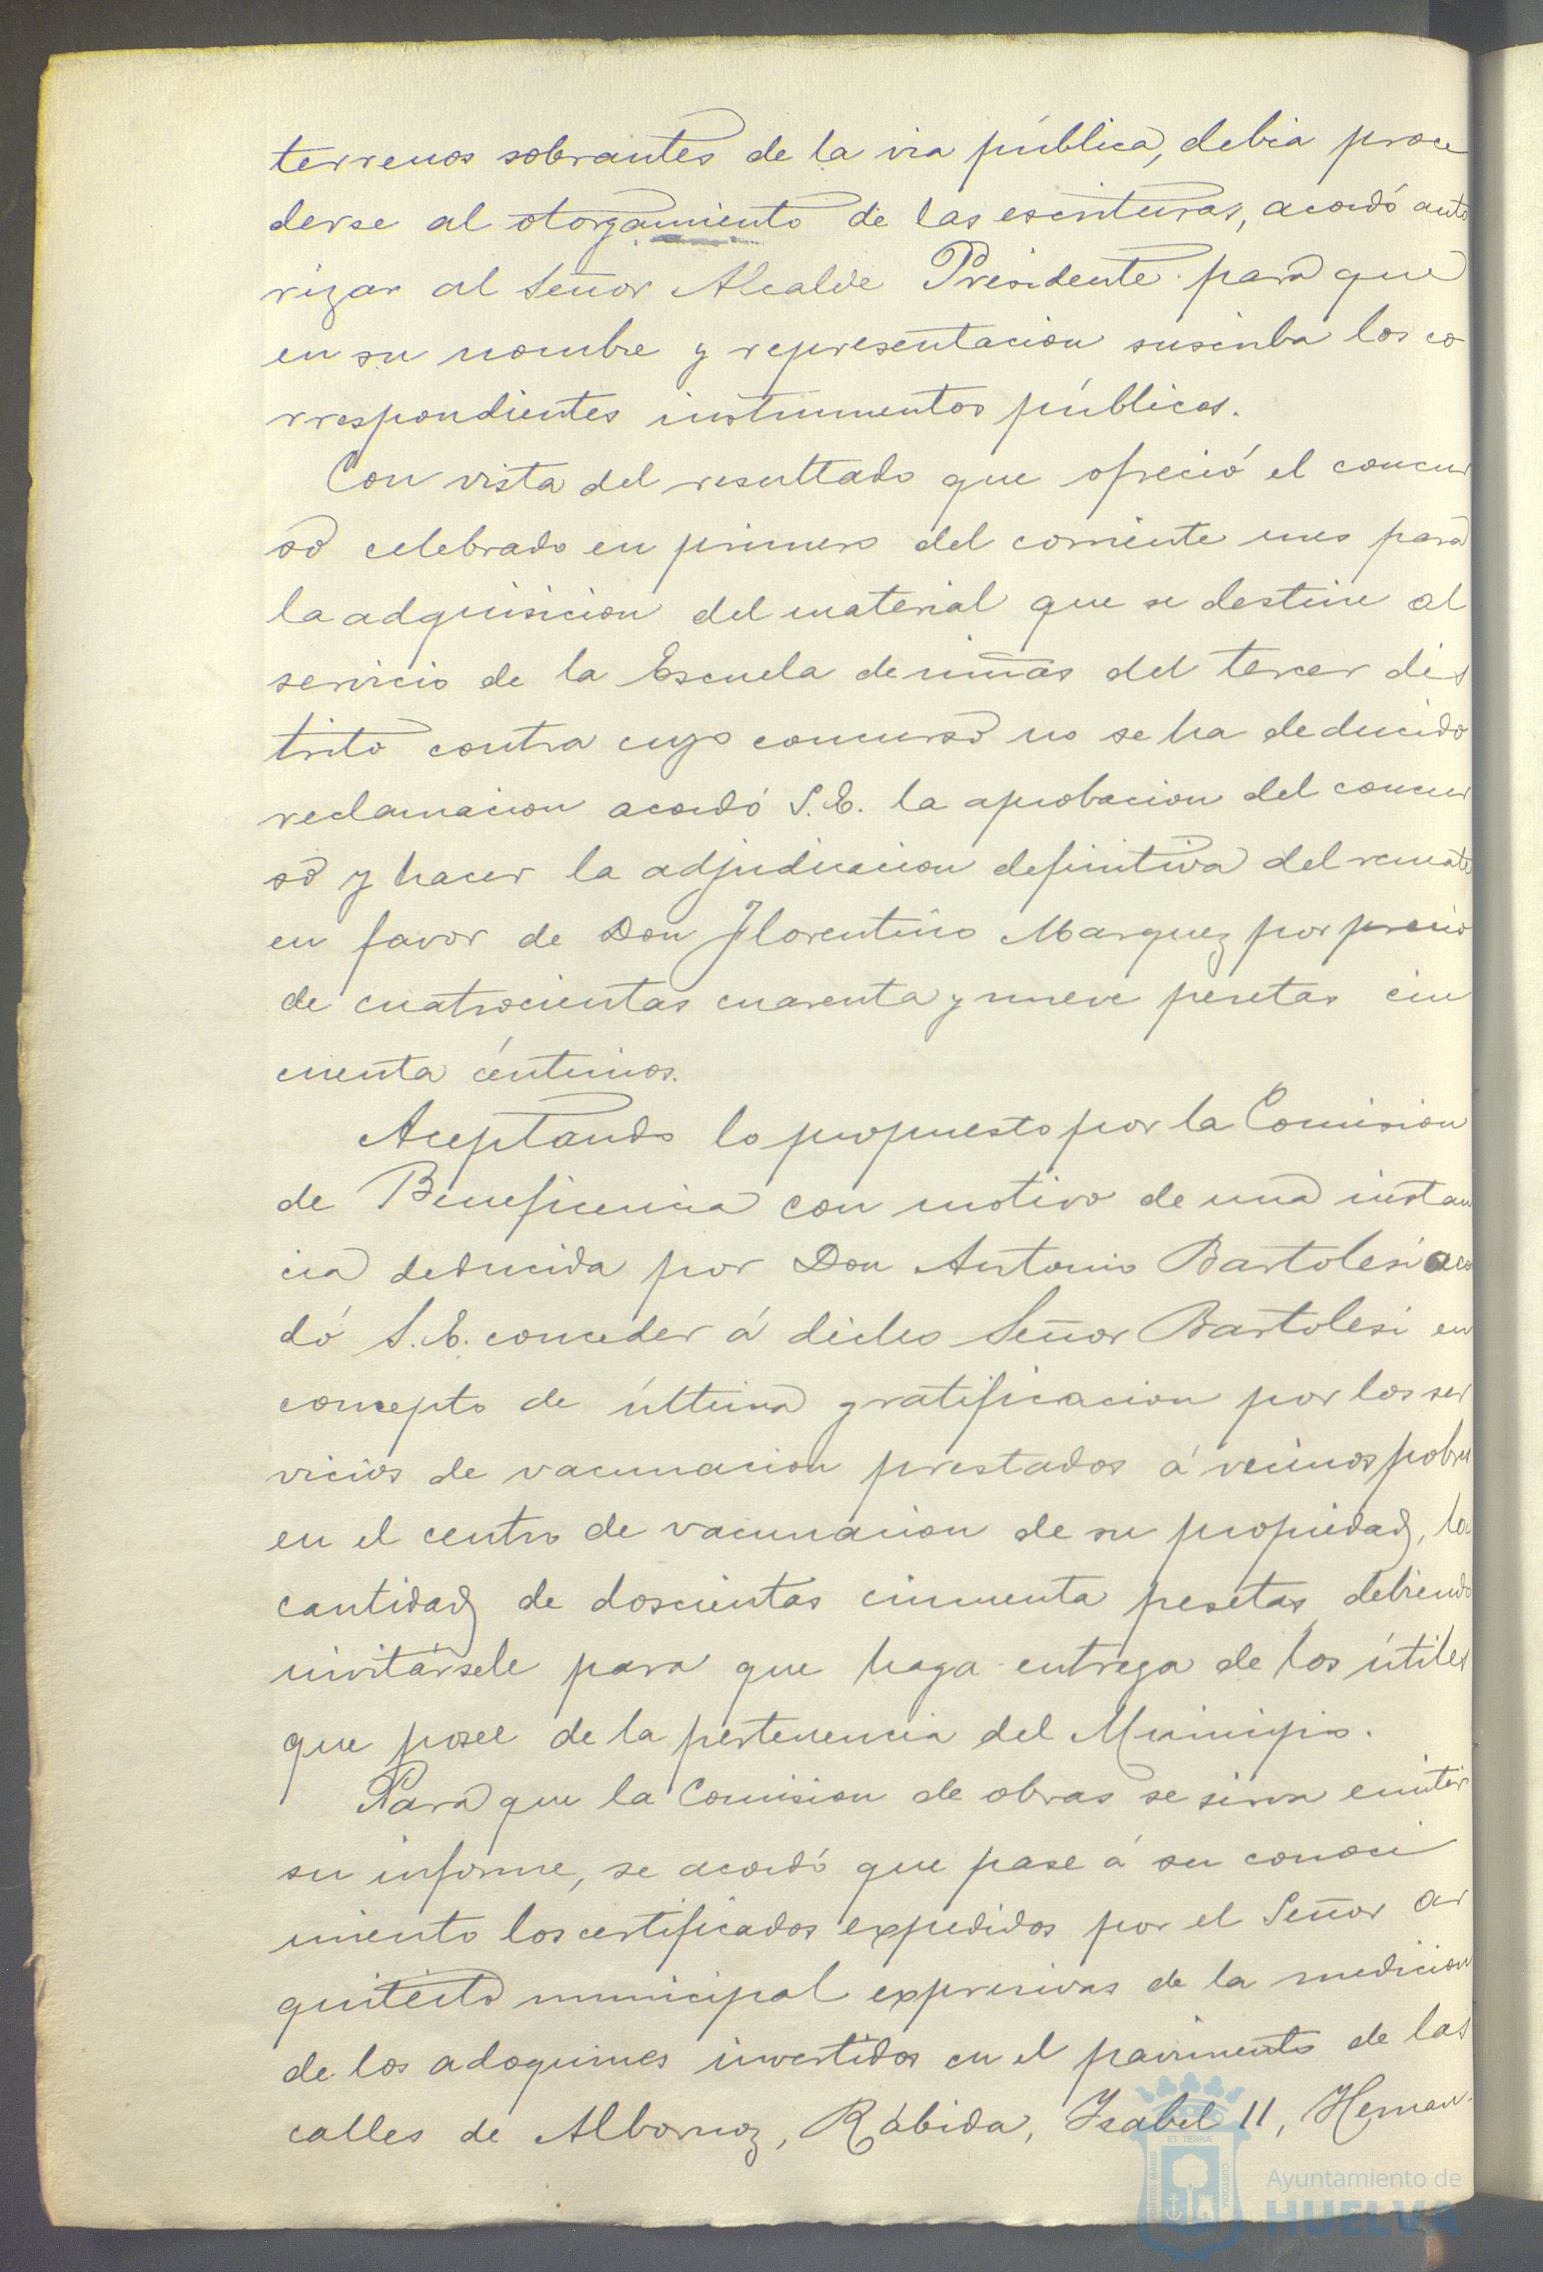 terrenos sobrantes de la via pública, debia proce
derse al otorgamiento de las escrituras, acordó auto
rizar al Señor Alcalde Presidente para que
en su nombre y representacion suscriba los co
rrespondientes instrumentos públicos.
Con vista del resultado que ofreció el concur
so celebrado en primero del corriente mes para
la adquisicion del material que se destine al
servicio de la Escuela de niñas del tercer dis
trito contra cuyo concurso no se ha deducido
reclamacion acordó S.E. la aprobacion del concur
so y hacer la adjudicacion definitiva del remate
en favor de Don Florentino Marquez por precio
de cuatrocientas cuarenta y nueve pesetas cin
cuenta céntimos.
Aceptando lo propuesto por la Comision
de Beneficencia con motivo de una instan
cia deducida por Don Antonio Bartolesi aco
dó S.E. conceder á dicho Señor Bartolesi en
concepto de última gratificacion por los ser
vicios de vacunacion prestados á vecinos pobres
en el centro de vacunacion de su propiedad, la
cantidad de doscientas cincuenta pesetas debiendo
invitársele para que haga entrega de los útiles
que posee de la pertenencia del Municipio.
Para que la Comision de obras se sirva emitir
su informe, se acordó que pase á su conoci
miento los certificados expedidos por el Señor Ar
quitecto municipal expresivas de la medicion
de los adoquines invertidos en el pavimento de las
calles de Albornoz, Rábida, Isabel II, Hernan
PORTUS MARIS
ET TERRÆ
CUSTODIA
Ayuntamiento de
HUELVA